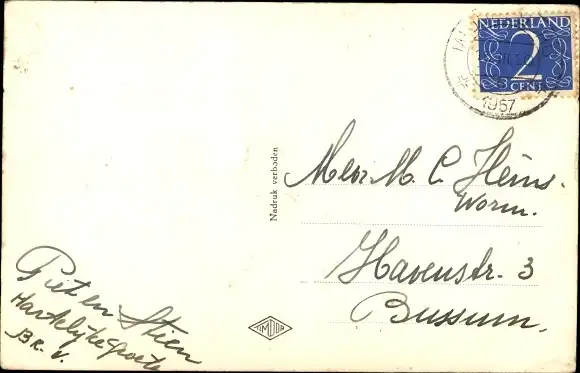 NEDERLAND
2
CENT
1957
Nadruk verboden
Mevr. M. C. Heins.
Worm.
Havenstr. 3
Bussum.
Piet en Stien
Hartelijke Groete
Br. V.